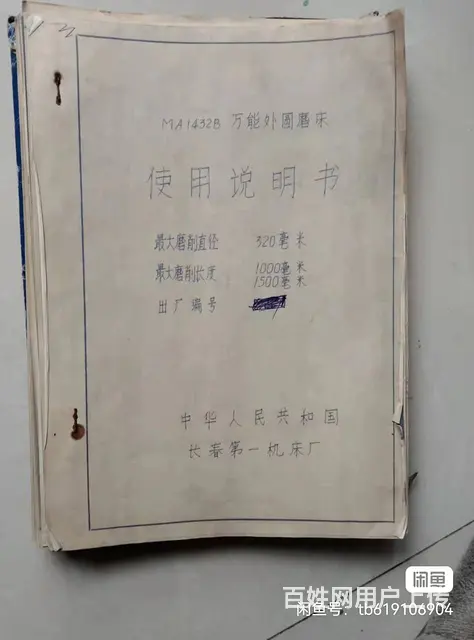 MA1432B 万能外圆磨床
使用说明书
最大磨削直径 320毫米
最大磨削长度 1000毫米
1500毫米
出厂编号
中华人民共和国
长春第一机床厂
闲鱼
百姓网用户上传
闲鱼号：tb619106904